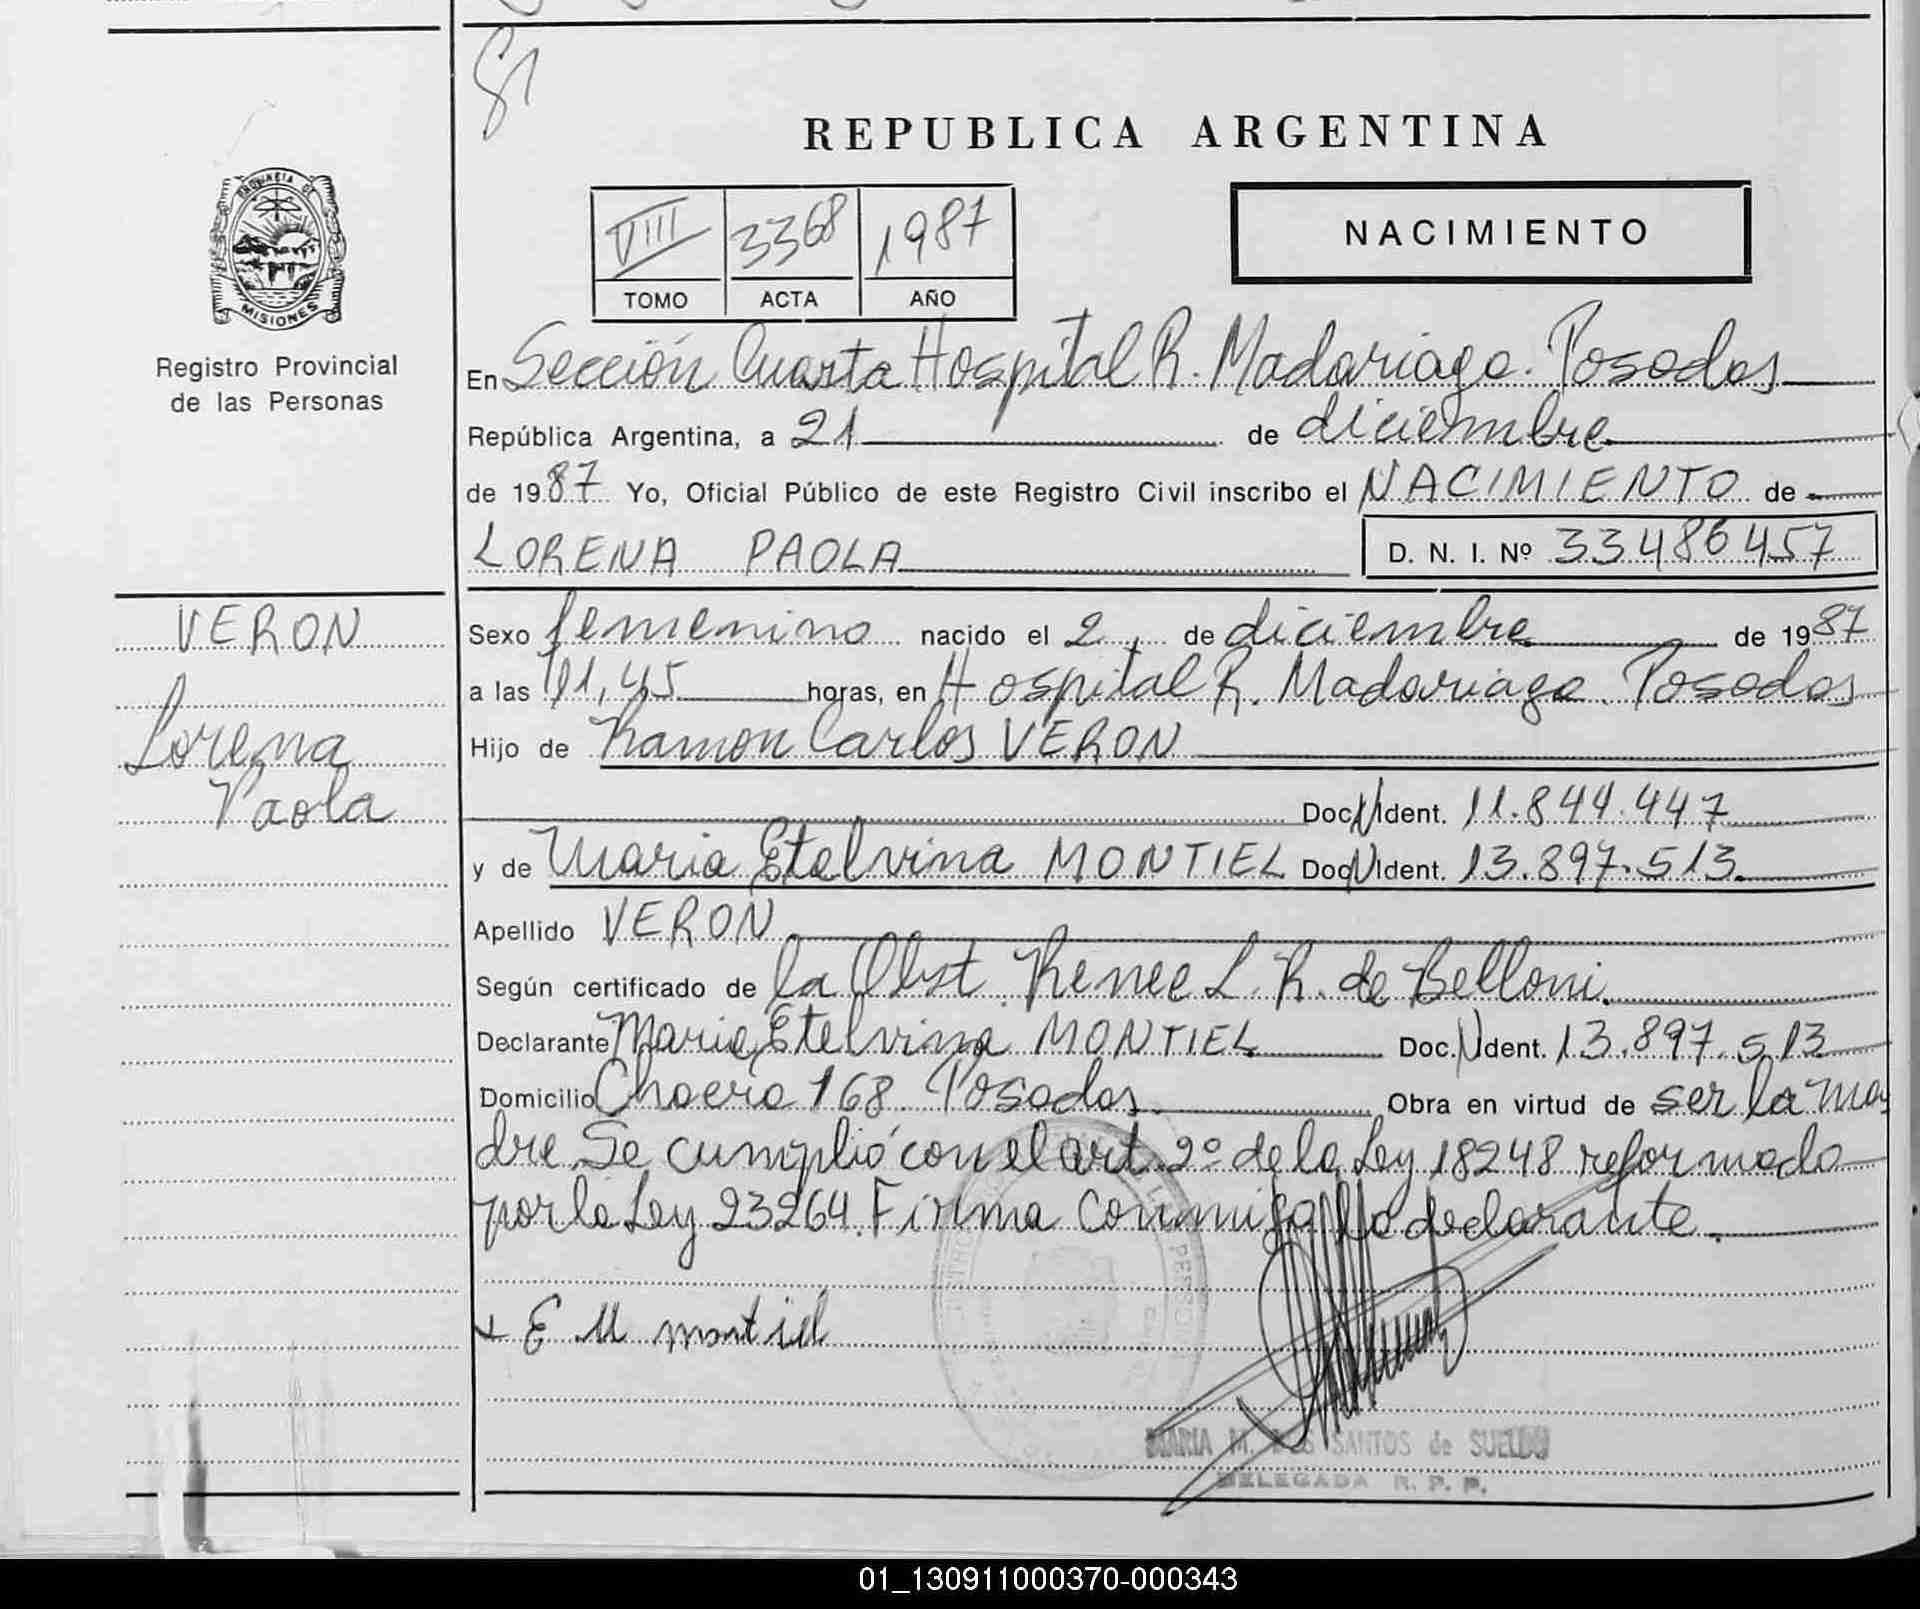 REPUBLICA ARGENTINA
PROVINCIA DE
MISIONES
Registro Provincial
de las Personas
VIII 3368 1987
TOMO ACTA AÑO
NACIMIENTO
En Sección Cuarta Hospital R. Madariaga. Posadas
República Argentina, a 21 de diciembre
de 1987 Yo, Oficial Público de este Registro Civil inscribo el NACIMIENTO de
LORENA PAOLA D. N. I. Nº 33486457
VERON
Lorena
Paola
Sexo femenino nacido el 2, de diciembre de 1987
a las 11,45 horas, en Hospital R. Madariaga. Posadas
Hijo de Ramon Carlos VERON
Doc. N Ident. 11.844.447
y de Maria Etelvina MONTIEL Doc. N Ident. 13.897.513
Apellido VERON
Según certificado de la Obst. Renee L. R. de Belloni.
Declarante Maria Etelvina MONTIEL Doc. N Ident. 13.897.513
Domicilio 168. Posadas Obra en virtud de ser la ma
dre. Se cumplió con el art. 2º de la Ley 18248 reformado
por la Ley 23264. Firma conmigo la declarante.
E M montiel
MARIA M. DOS SANTOS de SUELDO
DELEGADA R. P. P.
01_130911000370-000343